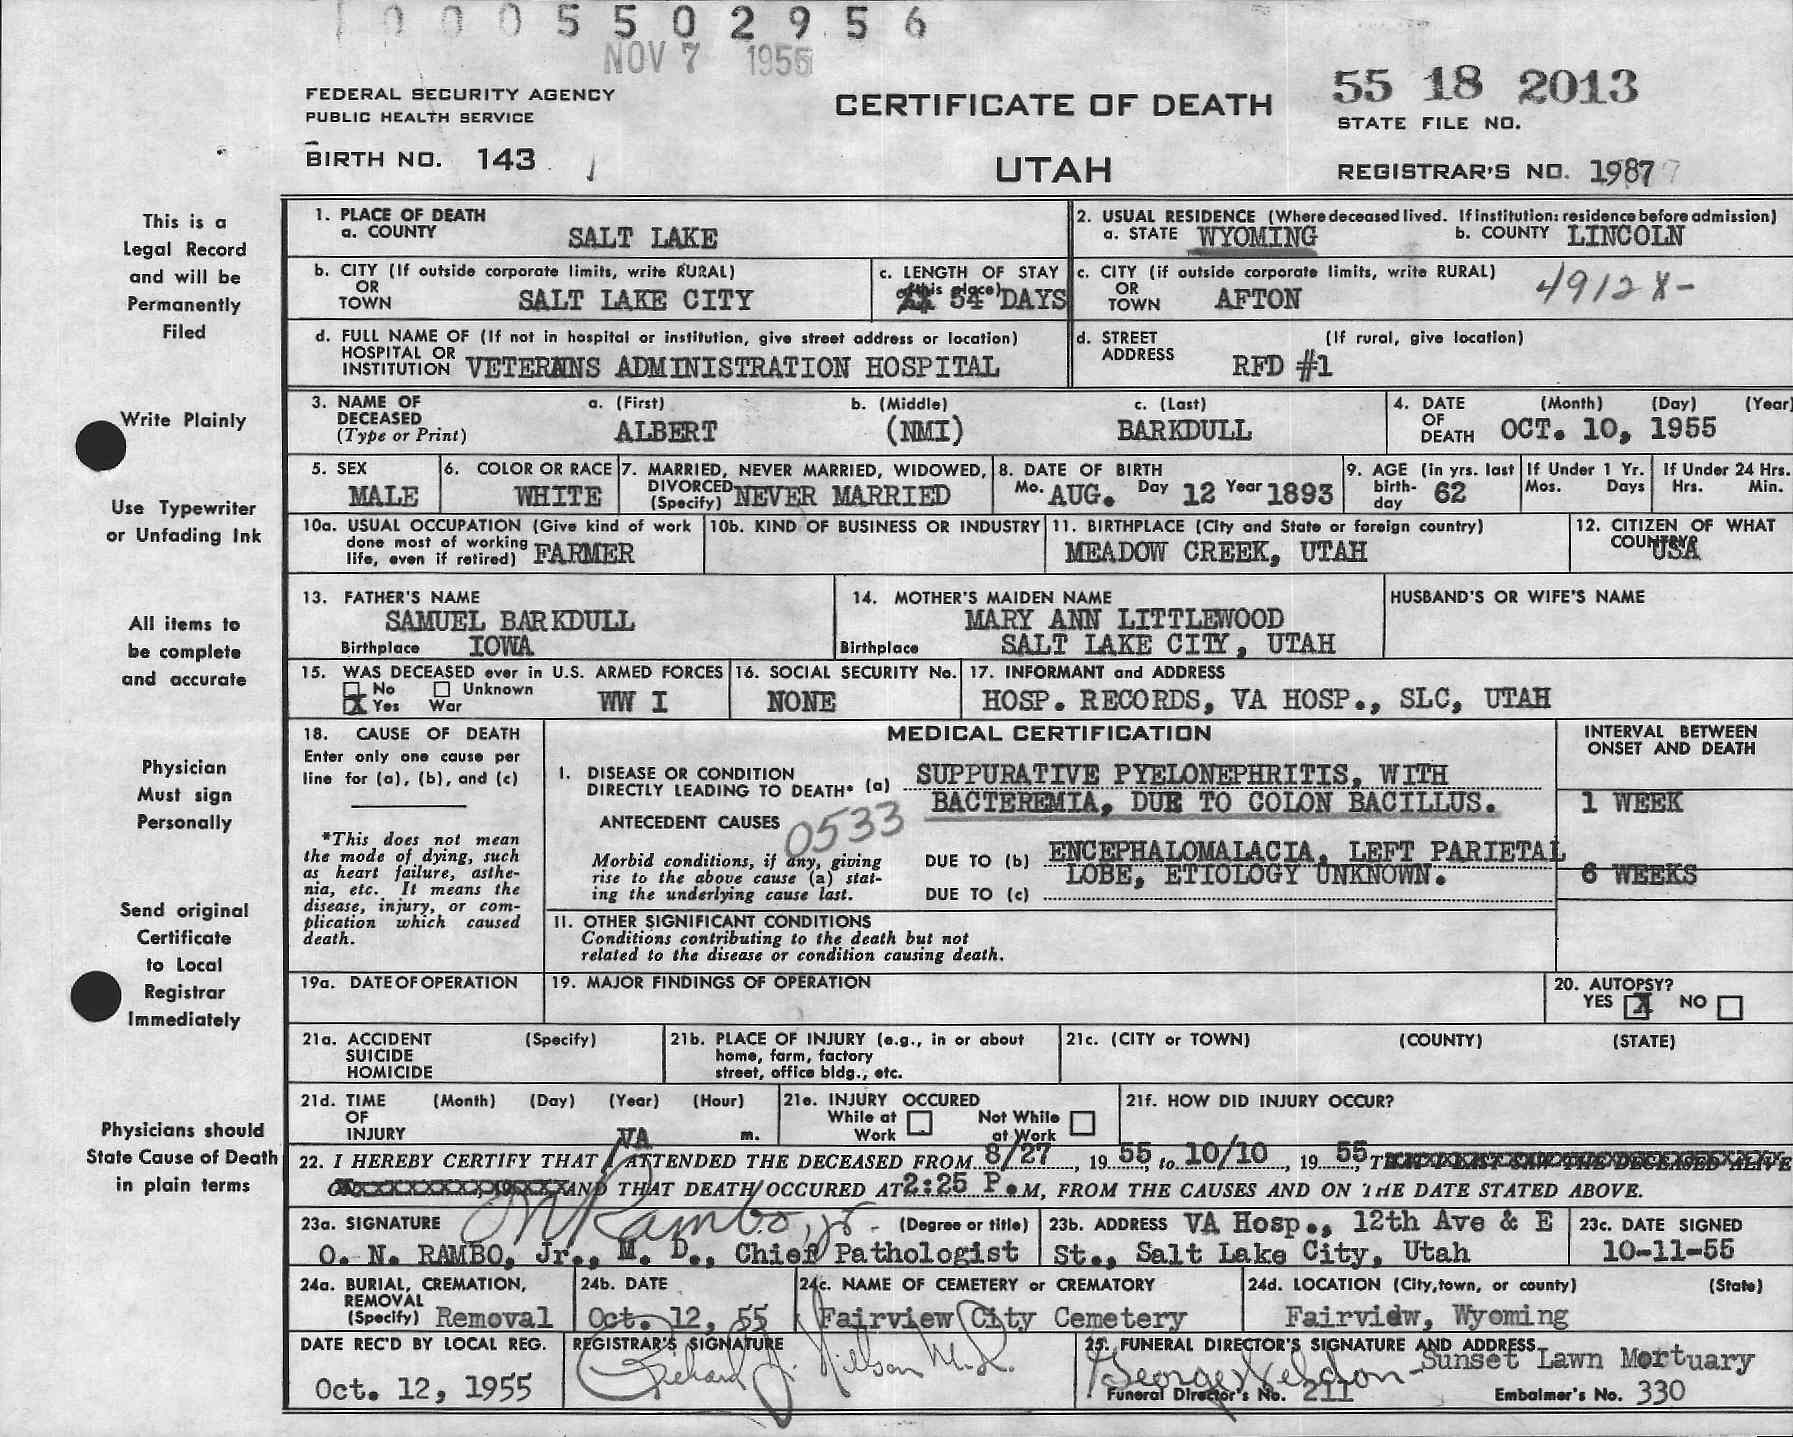 1 0 0 0 5 5 0 2 9 5 6
NOV 7 1955
FEDERAL SECURITY AGENCY
PUBLIC HEALTH SERVICE
BIRTH NO. 143
CERTIFICATE OF DEATH
UTAH
55 18 2013
STATE FILE NO.
REGISTRAR'S NO. 1987
This is a
Legal Record
and will be
Permanently
Filed
Write Plainly
Use Typewriter
or Unfading Ink
All items to
be complete
and accurate
Physician
Must sign
Personally
Send original
Certificate
to Local
Registrar
Immediately
Physicians should
State Cause of Death
in plain terms
1. PLACE OF DEATH
a. COUNTY SALT LAKE
2. USUAL RESIDENCE (Where deceased lived. If institution: residence before admission)
a. STATE WYOMING b. COUNTY LINCOLN
b. CITY (If outside corporate limits, write RURAL)
OR
TOWN SALT LAKE CITY
c. LENGTH OF STAY
(this place) 54 DAYS
c. CITY (if outside corporate limits, write RURAL)
OR
TOWN AFTON
4912X-
d. FULL NAME OF (If not in hospital or institution, give street address or location)
HOSPITAL OR
INSTITUTION VETERANS ADMINISTRATION HOSPITAL
d. STREET (If rural, give location)
ADDRESS RFD #1
3. NAME OF a. (First) b. (Middle) c. (Last)
DECEASED
(Type or Print) ALBERT (NMI) BARKDULL
4. DATE (Month) (Day) (Year)
OF
DEATH OCT. 10, 1955
5. SEX
MALE
6. COLOR OR RACE
WHITE
7. MARRIED, NEVER MARRIED, WIDOWED,
DIVORCED
(Specify) NEVER MARRIED
8. DATE OF BIRTH
Mo. AUG. Day 12 Year 1893
9. AGE (in yrs. last
birth-
day 62
If Under 1 Yr.
Mos. Days
If Under 24 Hrs.
Hrs. Min.
10a. USUAL OCCUPATION (Give kind of work
done most of working
life, even if retired) FARMER
10b. KIND OF BUSINESS OR INDUSTRY
11. BIRTHPLACE (City and State or foreign country)
MEADOW CREEK, UTAH
12. CITIZEN OF WHAT
COUNTRY?
USA
13. FATHER'S NAME
SAMUEL BARKDULL
Birthplace IOWA
14. MOTHER'S MAIDEN NAME
MARY ANN LITTLEWOOD
Birthplace SALT LAKE CITY, UTAH
HUSBAND'S OR WIFE'S NAME
15. WAS DECEASED ever in U.S. ARMED FORCES
No Unknown
X Yes War WW I
16. SOCIAL SECURITY No.
NONE
17. INFORMANT and ADDRESS
HOSP. RECORDS, VA HOSP., SLC, UTAH
18. CAUSE OF DEATH
Enter only one cause per
line for (a), (b), and (c)
*This does not mean
the mode of dying, such
as heart failure, asthe-
nia, etc. It means the
disease, injury, or com-
plication which caused
death.
MEDICAL CERTIFICATION
INTERVAL BETWEEN
ONSET AND DEATH
I. DISEASE OR CONDITION
DIRECTLY LEADING TO DEATH* (a) SUPPURATIVE PYELONEPHRITIS, WITH
BACTEREMIA, DUE TO COLON BACILLUS.
1 WEEK
ANTECEDENT CAUSES 0533
Morbid conditions, if any, giving
rise to the above cause (a) stat-
ing the underlying cause last.
DUE TO (b) ENCEPHALOMALACIA, LEFT PARIETAL
LOBE, ETIOLOGY UNKNOWN.
6 WEEKS
DUE TO (c)
II. OTHER SIGNIFICANT CONDITIONS
Conditions contributing to the death but not
related to the disease or condition causing death.
19a. DATE OF OPERATION
19. MAJOR FINDINGS OF OPERATION
20. AUTOPSY?
YES X NO
21a. ACCIDENT (Specify)
SUICIDE
HOMICIDE
21b. PLACE OF INJURY (e.g., in or about
home, farm, factory
street, office bldg., etc.
21c. (CITY or TOWN) (COUNTY) (STATE)
21d. TIME (Month) (Day) (Year) (Hour)
OF
INJURY m.
21e. INJURY OCCURED
While at Work
Not While at Work
21f. HOW DID INJURY OCCUR?
VA
22. I HEREBY CERTIFY THAT I ATTENDED THE DECEASED FROM 8/27, 19 55, to 10/10, 19 55, THAT I LAST SAW THE DECEASED ALIVE
AND THAT DEATH OCCURED AT 2:25 P.M, FROM THE CAUSES AND ON THE DATE STATED ABOVE.
23a. SIGNATURE ON Rambo, Jr. (Degree or title)
O. N. RAMBO, Jr., M. D., Chief Pathologist
23b. ADDRESS VA Hosp., 12th Ave & E
St., Salt Lake City, Utah
23c. DATE SIGNED
10-11-55
24a. BURIAL, CREMATION,
REMOVAL
(Specify) Removal
24b. DATE
Oct. 12, 55
24c. NAME OF CEMETERY or CREMATORY
Fairview City Cemetery
24d. LOCATION (City, town, or county) (State)
Fairview, Wyoming
DATE REC'D BY LOCAL REG.
Oct. 12, 1955
REGISTRAR'S SIGNATURE
Richard J. Nilson M.D.
25. FUNERAL DIRECTOR'S SIGNATURE AND ADDRESS
George Weldon - Sunset Lawn Mortuary
Funeral Director's No. 211 Embalmer's No. 330